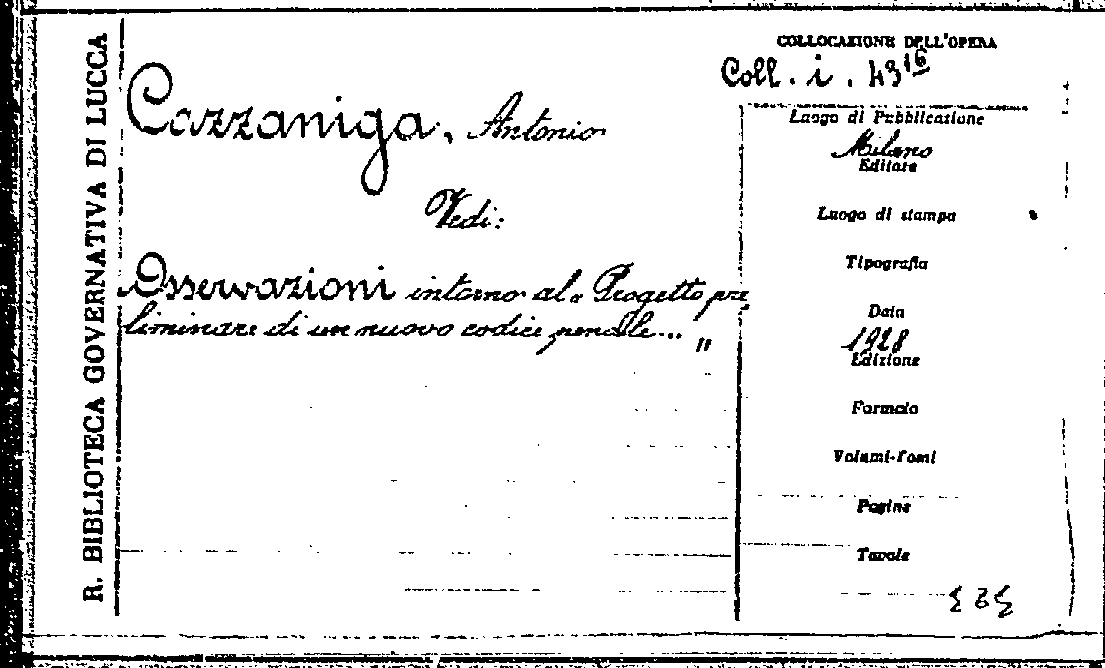 R. BIBLIOTECA GOVERNATIVA DI LUCCA
Cazzaniga, Antonio
Vedi:
Osservazioni intorno al "Progetto pre
liminare di un nuovo codice penale... "
COLLOCAZIONE DELL'OPERA
Coll. i. 43 16
Luogo di Pubblicazione
Milano
Editore
Luogo di stampa
Tipografia
Data
1928
Edizione
Formato
Volumi-Tomi
Pagine
Tavole